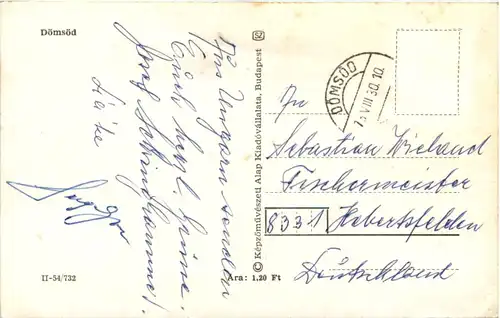 Dömsöd
Aus Ungarn senden
Euch herzl. Grüsse
Josef
Käte
II-54/732
© Képzőművészeti Alap Kiadóvállalata, Budapest
Ára: 1.20 Ft
DÖMSÖD
VIII 30. 10
An
Sebastian Wieland
Fischermeister
8331 Hebertsfelden
Deutschland